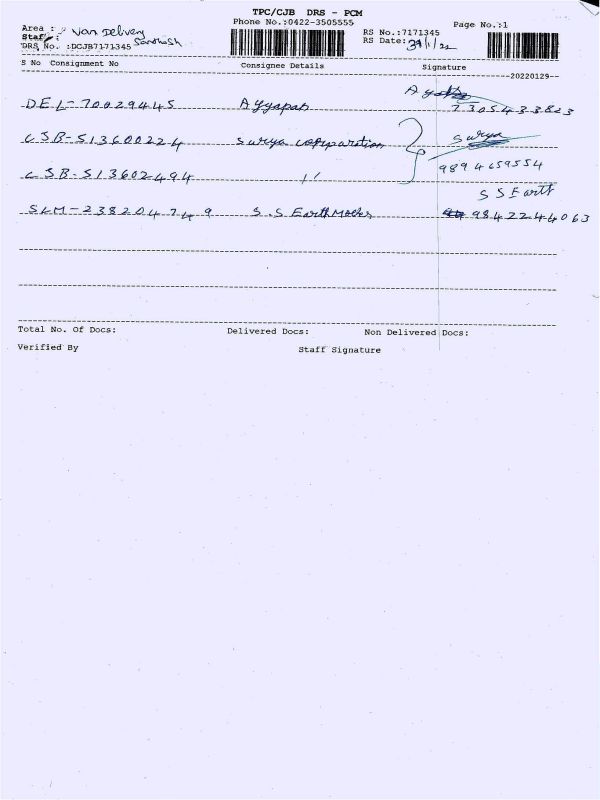 TPC/CJB DRS - PCM
Phone No.:0422-3505555
Page No.:1
Area : Van Delivery
Staff : Santhosh
RS No.:7171345
RS Date: /1/22
DRS No. :DCJB7171345
S No Consignment No Consignee Details Signature
20220129
DEL-70029445 Ayyapan 7305433823
CSB-513600224 Surya corporation Surya
9894659554
CSB-513602494 〃
SS Earth
SLM-238204749 S.S Earth Moves 9842244063
Total No. Of Docs: Delivered Docs: Non Delivered Docs:
Verified By Staff Signature